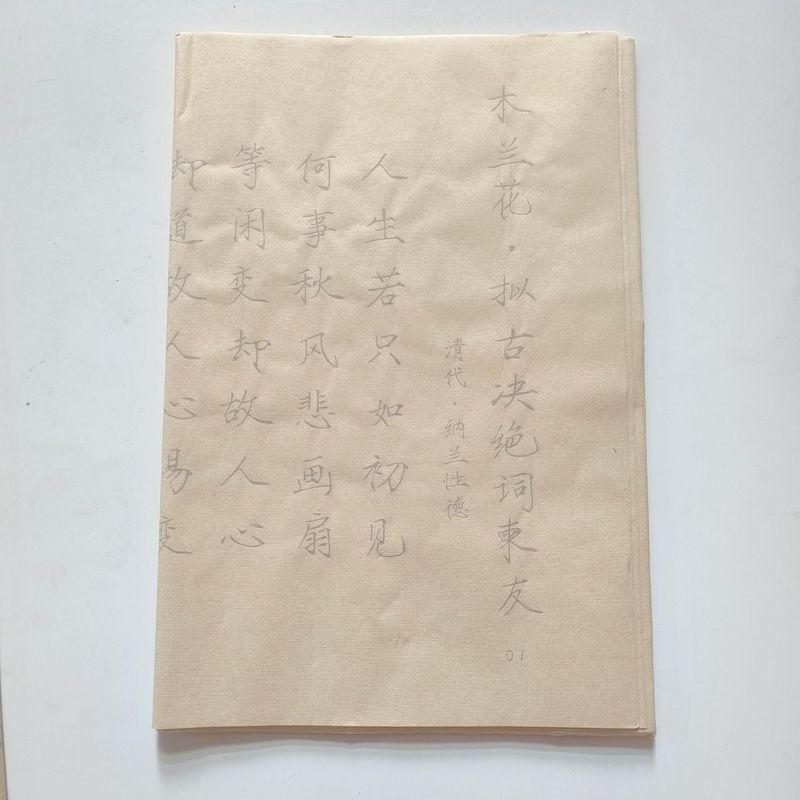 木兰花·拟古决绝词柬友
01
清代·纳兰性德
人生若只如初见
何事秋风悲画扇
等闲变却故人心
却道故人心易变